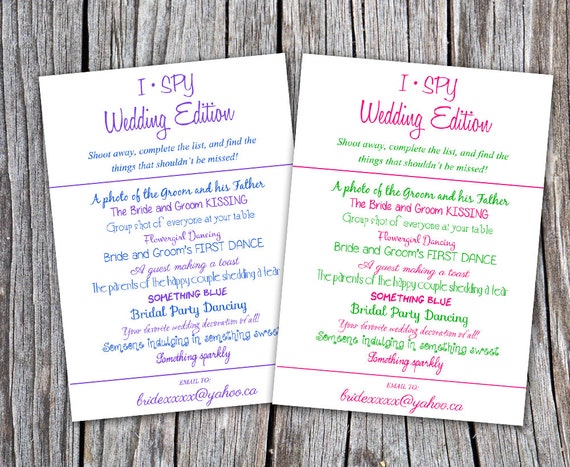 I • SPY
Wedding Edition
Shoot away, complete the list, and find the
things that shouldn't be missed!
A photo of the Groom and his Father
The Bride and Groom KISSING
Group shot of everyone at your table
Flowergirl Dancing
Bride and Groom's FIRST DANCE
A guest making a toast
The parents of the happy couple shedding a tear
SOMETHING BLUE
Bridal Party Dancing
Your favorite wedding decoration of all!
Someone indulging in something sweet
Something sparkly
EMAIL TO:
bridexxxxx@yahoo.ca
I • SPY
Wedding Edition
Shoot away, complete the list, and find the
things that shouldn't be missed!
A photo of the Groom and his Father
The Bride and Groom KISSING
Group shot of everyone at your table
Flowergirl Dancing
Bride and Groom's FIRST DANCE
A guest making a toast
The parents of the happy couple shedding a tear
SOMETHING BLUE
Bridal Party Dancing
Your favorite wedding decoration of all!
Someone indulging in something sweet
Something sparkly
EMAIL TO:
bridexxxxx@yahoo.ca